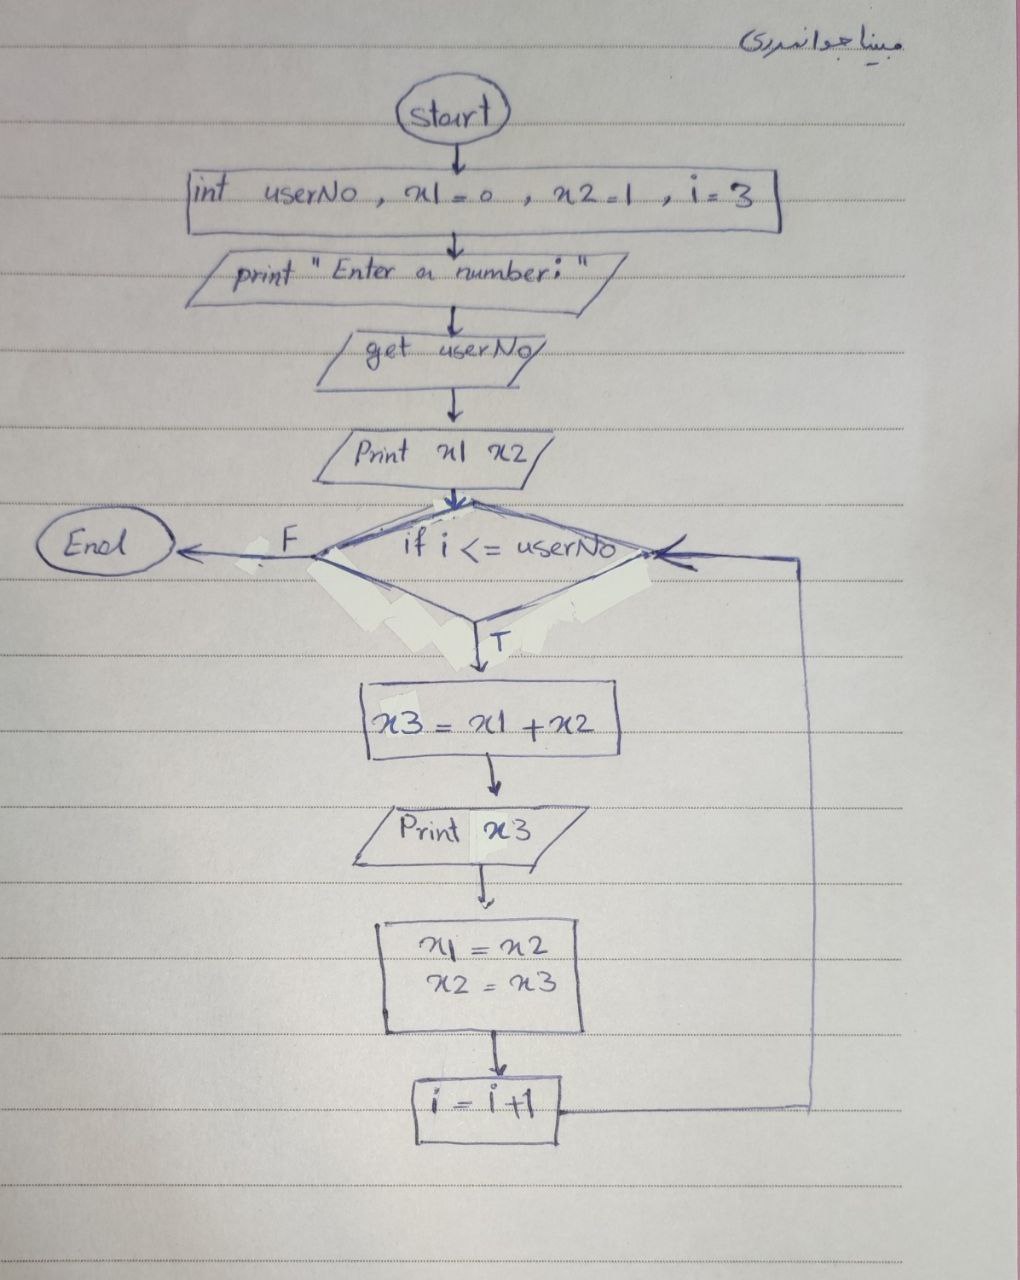 مبینا جوانمردی
start
int userNo , x1 = 0 , x2 = 1 , i = 3
print " Enter a number: "
get userNo
Print x1 x2
if i <= userNo
F
End
T
x3 = x1 + x2
Print x3
x1 = x2
x2 = x3
i = i + 1